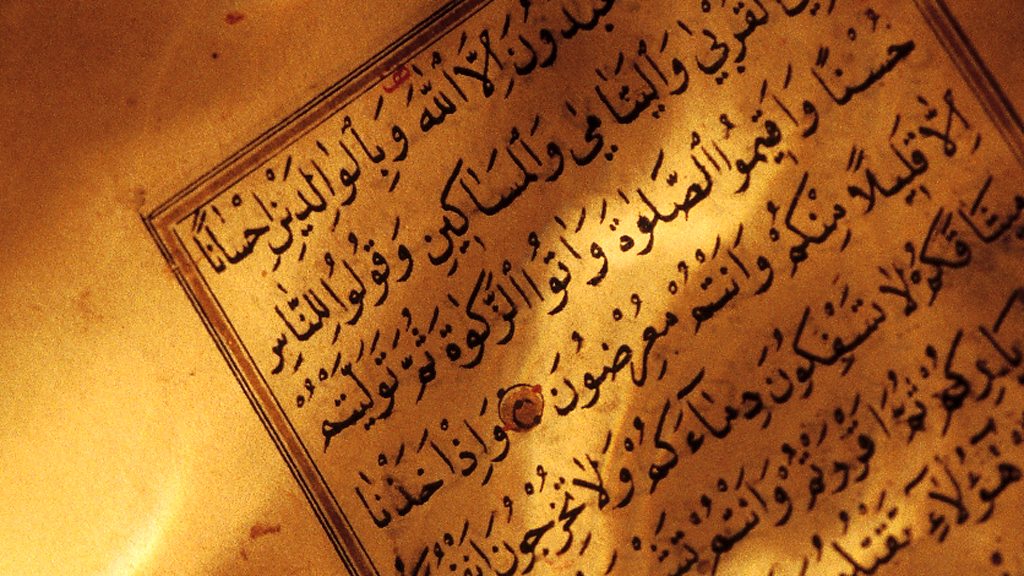 اِلَّا اللّٰهَ وَبِالْوَالِدَيْنِ اِحْسَانًا
الْقُرْبٰى وَالْيَتَامٰى وَالْمَسَاكِينِ وَقُولُوا لِلنَّاسِ
حُسْنًا وَاَقِيمُوا الصَّلٰوةَ وَاٰتُوا الزَّكٰوةَ ثُمَّ تَوَلَّيْتُمْ
اِلَّا قَلِيلًا مِنْكُمْ وَاَنْتُمْ مُعْرِضُونَ وَاِذْ اَخَذْنَا
مِيثَاقَكُمْ لَا تَسْفِكُونَ دِمَاءَكُمْ وَلَا تُخْرِجُونَ
دِيَارِكُمْ ثُمَّ اَقْرَرْتُمْ وَاَنْتُمْ
هٰٓؤُلَاءِ